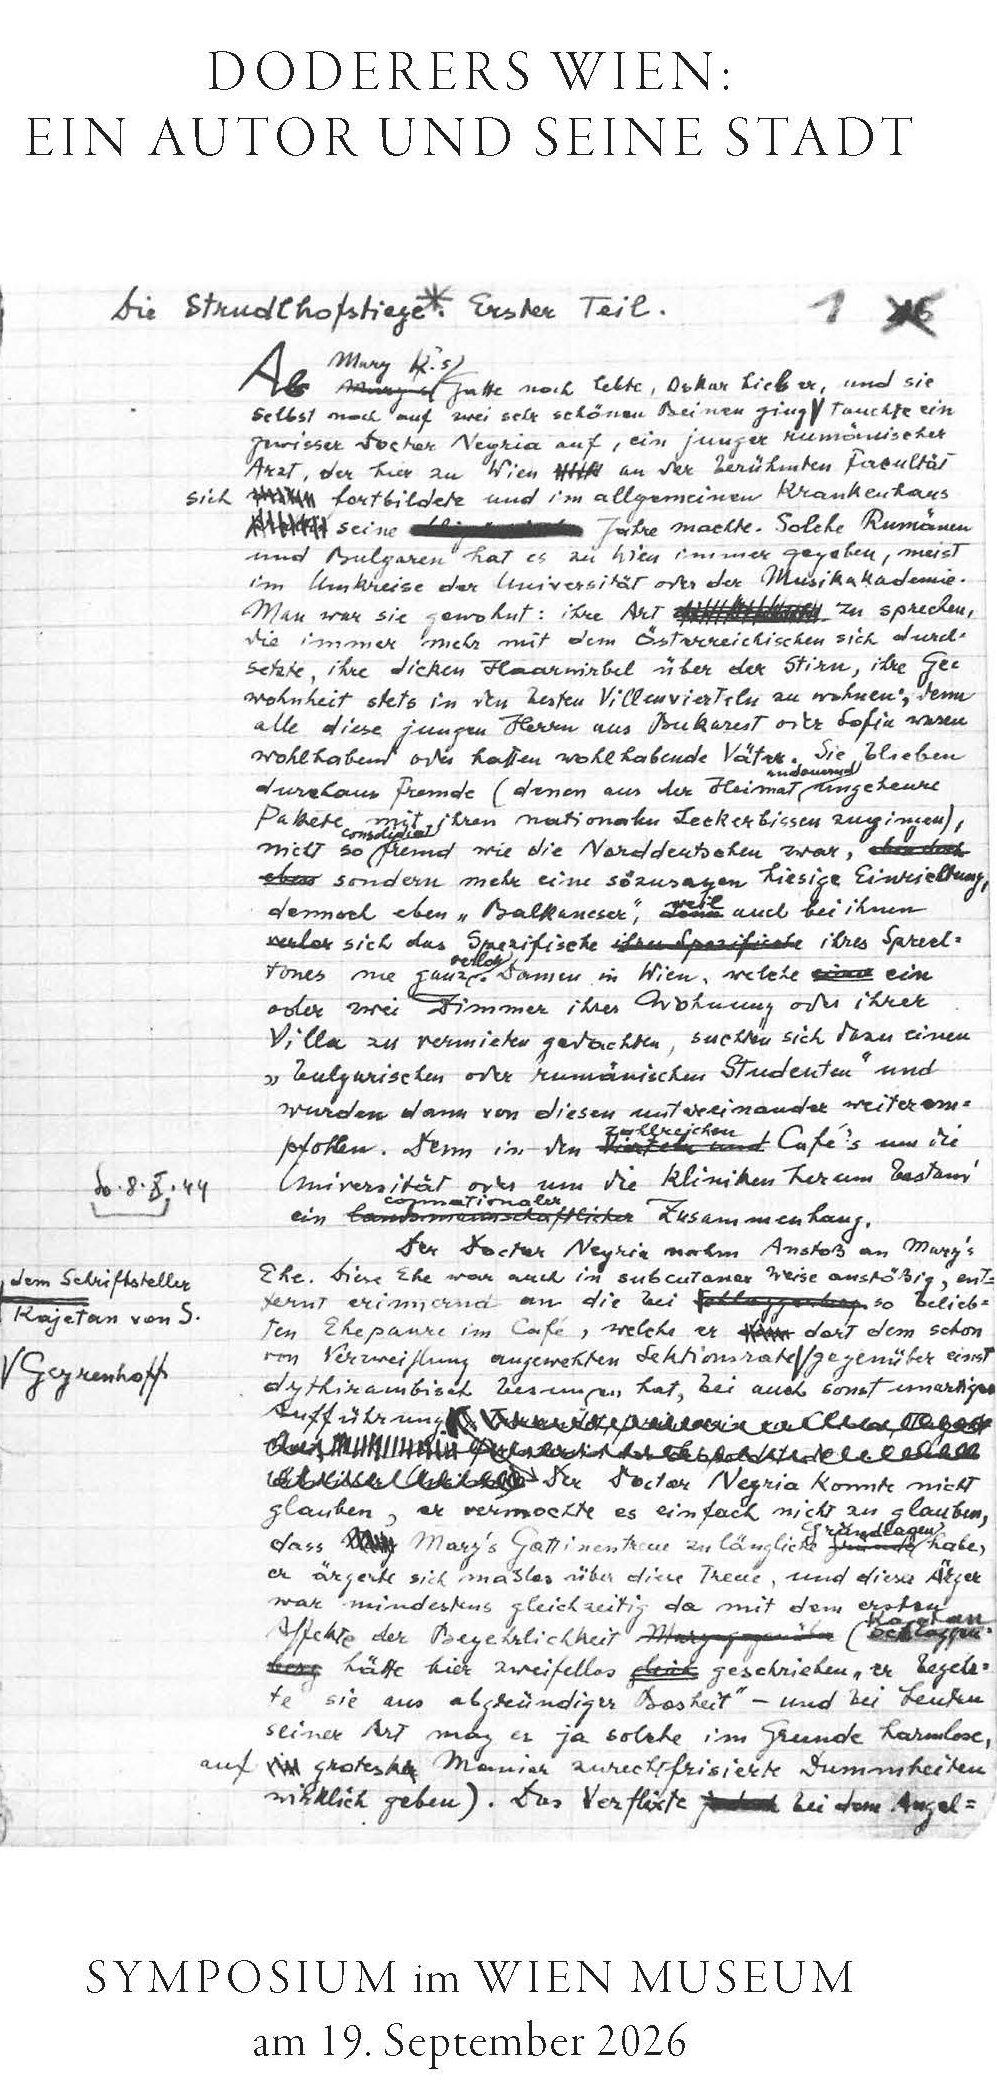 DODERERS WIEN:
EIN AUTOR UND SEINE STADT
Die Strudlhofstiege*. Erster Teil. 1
Mary K.'s
Als Gatte noch lebte, Oskar hieß er, und sie
selbst noch auf zwei sehr schönen Beinen ging, tauchte ein
gewisser Doctor Negria auf, ein junger rumänischer
Arzt, der hier zu Wien an der berühmten Facultät
sich fortbildete und im allgemeinen Krankenhaus
seine Jahre machte. Solche Rumänen
und Bulgaren hat es zu Wien immer gegeben, meist
im Umkreise der Universität oder der Musikakademie.
Man war sie gewohnt: ihre Art zu sprechen,
die immer mehr mit dem Österreichischen sich durch-
setzte, ihre dicken Haarwirbel über der Stirn, ihre Ge-
wohnheit stets in den besten Villenvierteln zu wohnen, denn
alle diese jungen Herrn aus Bukarest oder Sofia waren
wohlhabend oder hatten wohlhabende Väter. Sie blieben
andauernd
durchaus Fremde (denen aus der Heimat ungeheure
Pakete mit ihren nationalen Leckerbissen zugingen),
consolidiert
nicht so fremd wie die Norddeutschen zwar,
sondern mehr eine sozusagen hiesige Einrichtung,
dennoch eben „Balkaneser", weil auch bei ihnen
sich das Spezifische ihres Sprech-
verlor
tones nie ganz. Damen in Wien, welche ein
oder zwei Zimmer ihrer Wohnung oder ihrer
Villa zu vermieten gedachten, suchten sich dazu einen
„bulgarischen oder rumänischen Studenten" und
wurden dann von diesen untereinander weiterem-
zahlreichen
pfohlen. Denn in den Café's um die
So. 8. X. 44
Universität oder um die Kliniken herum bestand
connationaler
ein landsmannschaftlicher Zusammenhang.
Der Doctor Negria nahm Anstoß an Mary's
dem Schriftsteller
Ehe. Diese Ehe war auch in subcutaner Weise anstößig, ent-
Kajetan von S.
fernt erinnernd an die bei Schlaggenberg so belieb-
ten Ehepaare im Café, welche er dort dem schon
Geyrenhoff
von Verzweiflung angewehten Sektionsrate gegenüber einst
dythirambisch besungen hat, bei auch sonst unartiger
Aufführung.
Der Doctor Negria konnte nicht
glauben, er vermochte es einfach nicht zu glauben,
Grundlagen
dass Mary's Gattinentreue zulängliche Gründe habe,
er ärgerte sich maslos über diese Treue, und dieser Ärger
war mindestens gleichzeitig da mit dem ersten
Kajetan
Affekte der Begehrlichkeit (Schlaggen-
berg hätte hier zweifellos geschrieben „er begehr-
te sie aus abgründiger Bosheit" – und bei Leuten
seiner Art mag es ja solche im Grunde harmlose,
auf groteske Manier zurechtfrisierte Dummheiten
wirklich geben). Das Verflixte bei dem Angel-
SYMPOSIUM im WIEN MUSEUM
am 19. September 2026